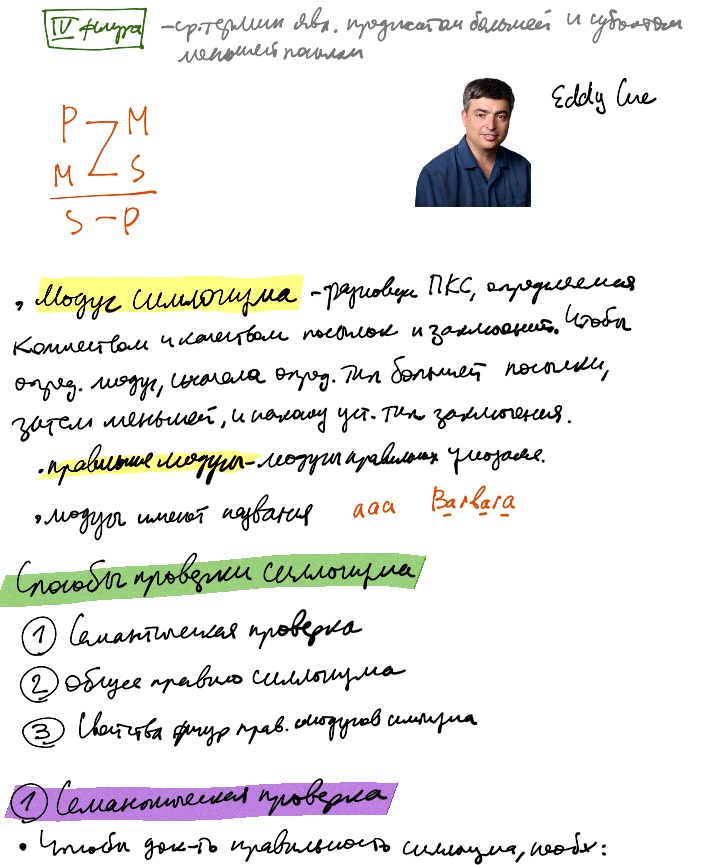 IV фигура - ср. термин явл. предикатом большей и субъектом
меньшей посылки
Eddy Cue
P M
M S
S - P
• Модус силлогизма - разновидн ПКС, определяемая
количеством и качеством посылок и заключений. Чтобы
опред. модус, сначала опред. тип большей посылки,
затем меньшей, и наконец уст. тип заключения.
• правильные модусы - модусы правильных
• модусы имеют названия aaa Barbara
Способы проверки силлогизма
1 Семантическая проверка
2 Общее правило силлогизма
3 Свойства фигур прав. модусов
1 Семантическая проверка
• Чтобы док-ть правильность силлогизма, необх: